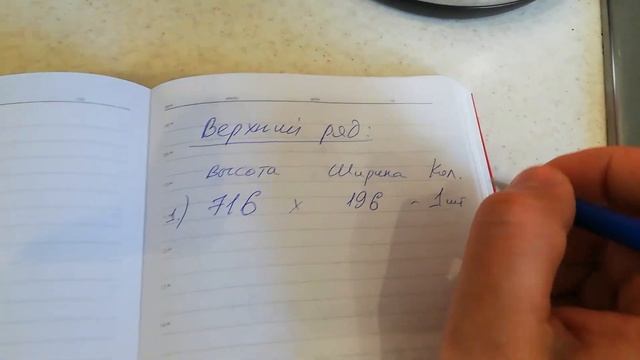 Верхний ряд:
высота Ширина Кол.
1.) 716 х 196 - 1 шт